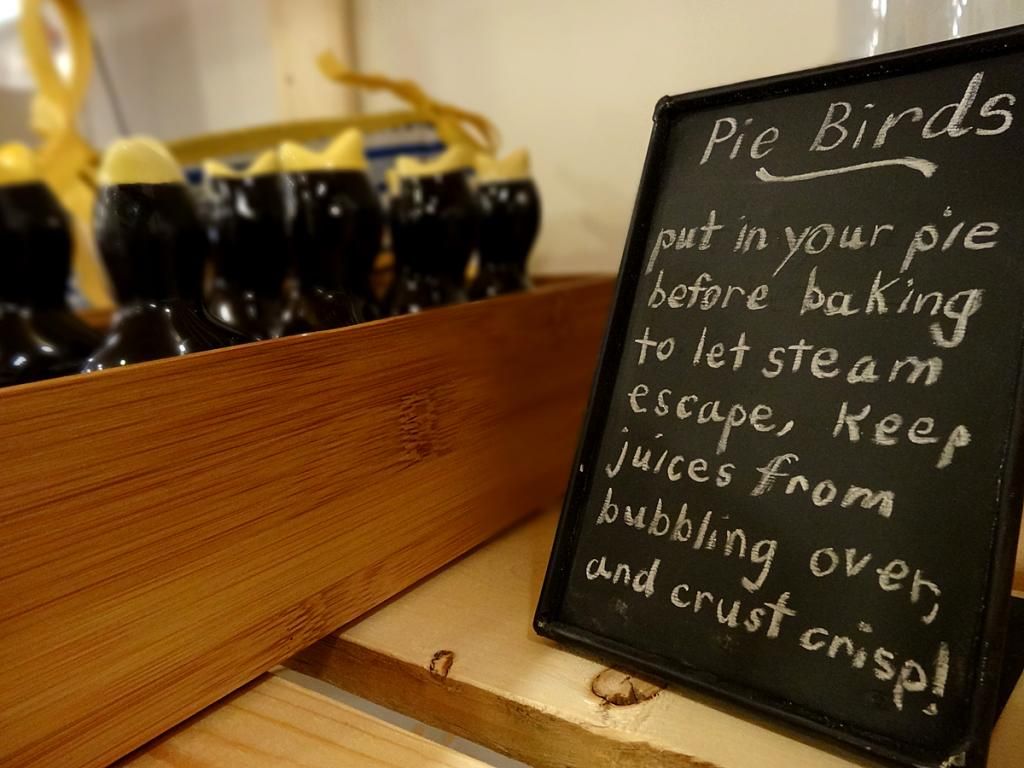 Pie Birds
put in your pie
before baking
to let steam
escape, Keep
juices from
bubbling over,
and crust crisp!